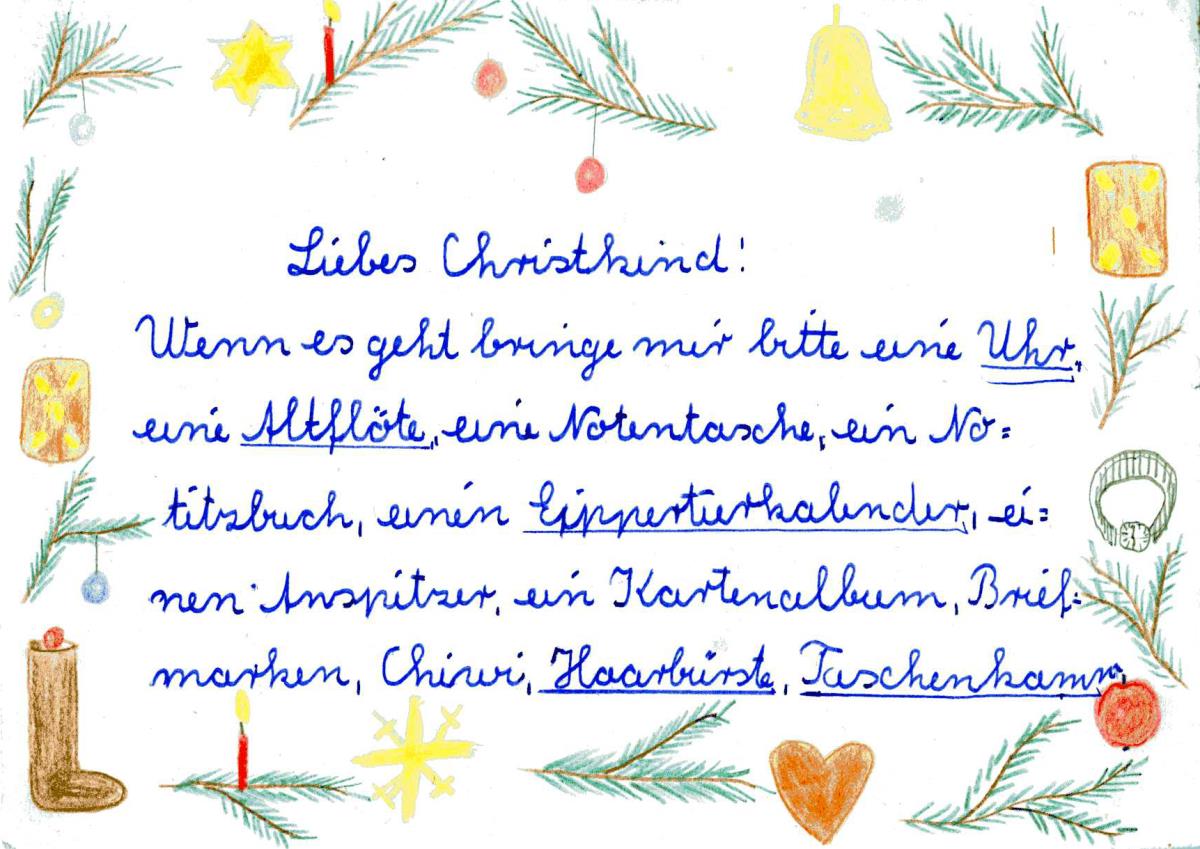 Liebes Christkind!
Wenn es geht bringe mir bitte eine Uhr,
eine Altflöte, eine Notentasche, ein No=
titzbuch, einen Eippertierkalender, ei=
nen Anspitzer, ein Kartenalbum, Brief=
marken, Chiwi, Haarbürste, Taschenkamm,